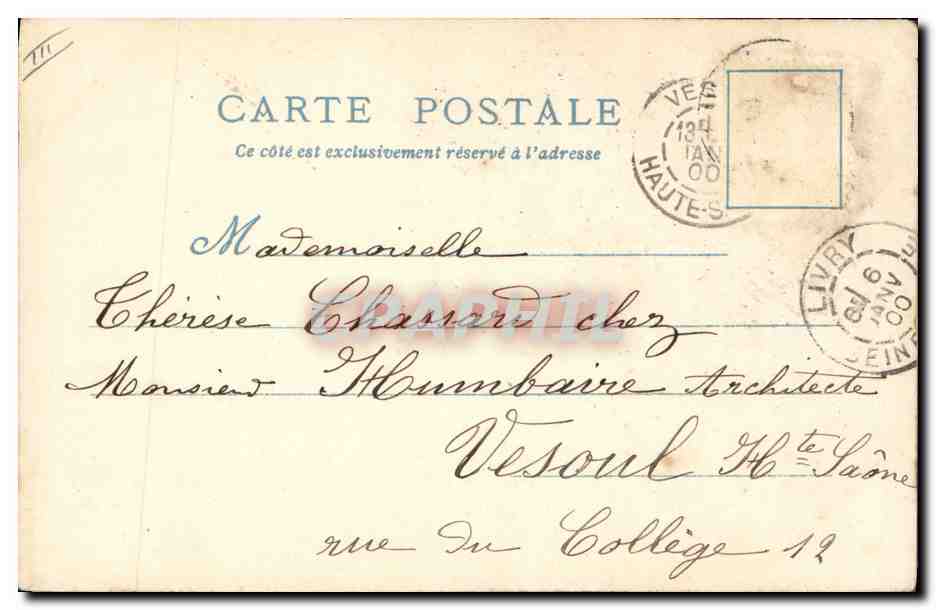 III
CARTE POSTALE
Ce côté est exclusivement réservé à l'adresse
VES
13
JANV
00
HAUTE-S
LIVRY
6
JANV
00
SEINE
Mademoiselle
Thérèse Chassard chez
Monsieur Humbaire Architecte
Vesoul Hte Saône
rue du Collège 12